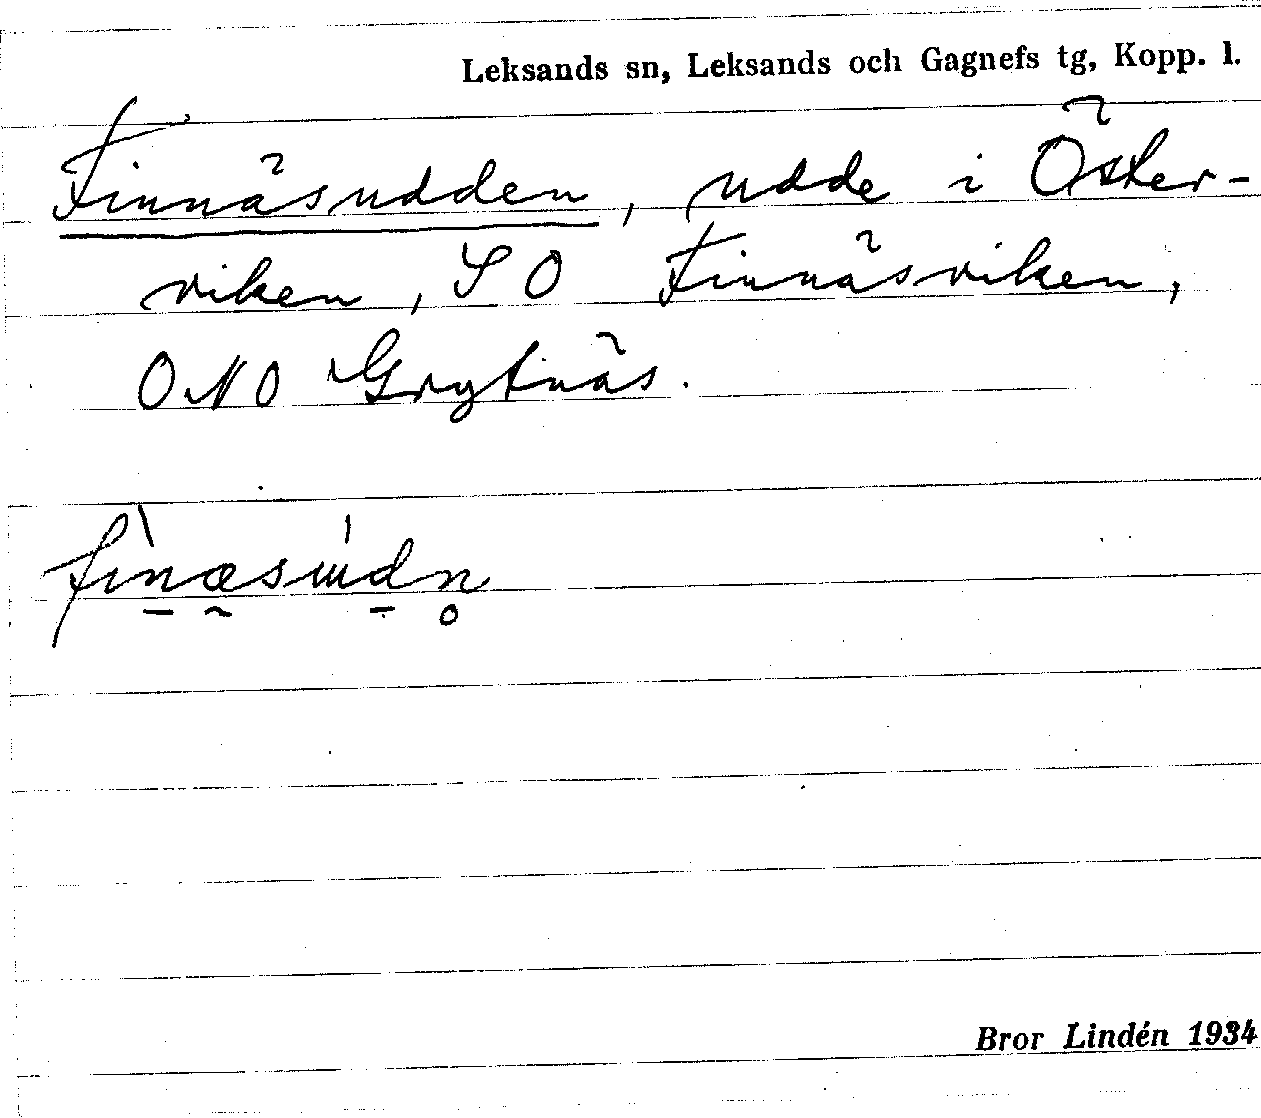 Leksands sn, Leksands och Gagnefs tg, Kopp. l.
Finnäsudden, udde i Öster-
viken, SO Finnäsviken,
ONO Grytnäs.
Bror Lindén 1934